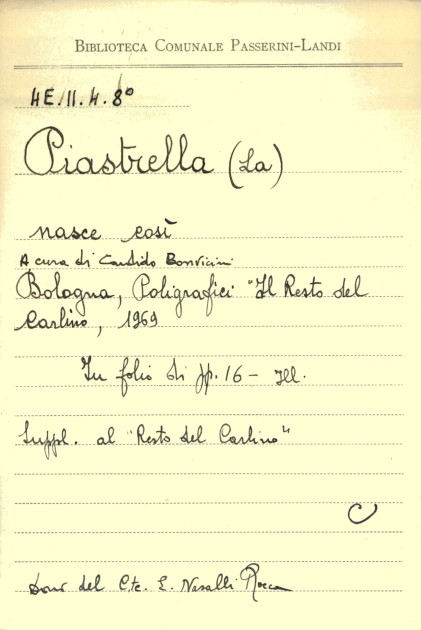 BIBLIOTECA COMUNALE PASSERINI-LANDI
4E.II.4.8°
Piastrella (La)
nasce così
A cura di Candido Bonvicini
Bologna, Poligrafici "Il Resto del
Carlino, 1969
In folio di pp. 16 - ill.
Suppl. al "Resto del Carlino"
C
Dono del C.te. E. Nasalli Rocca